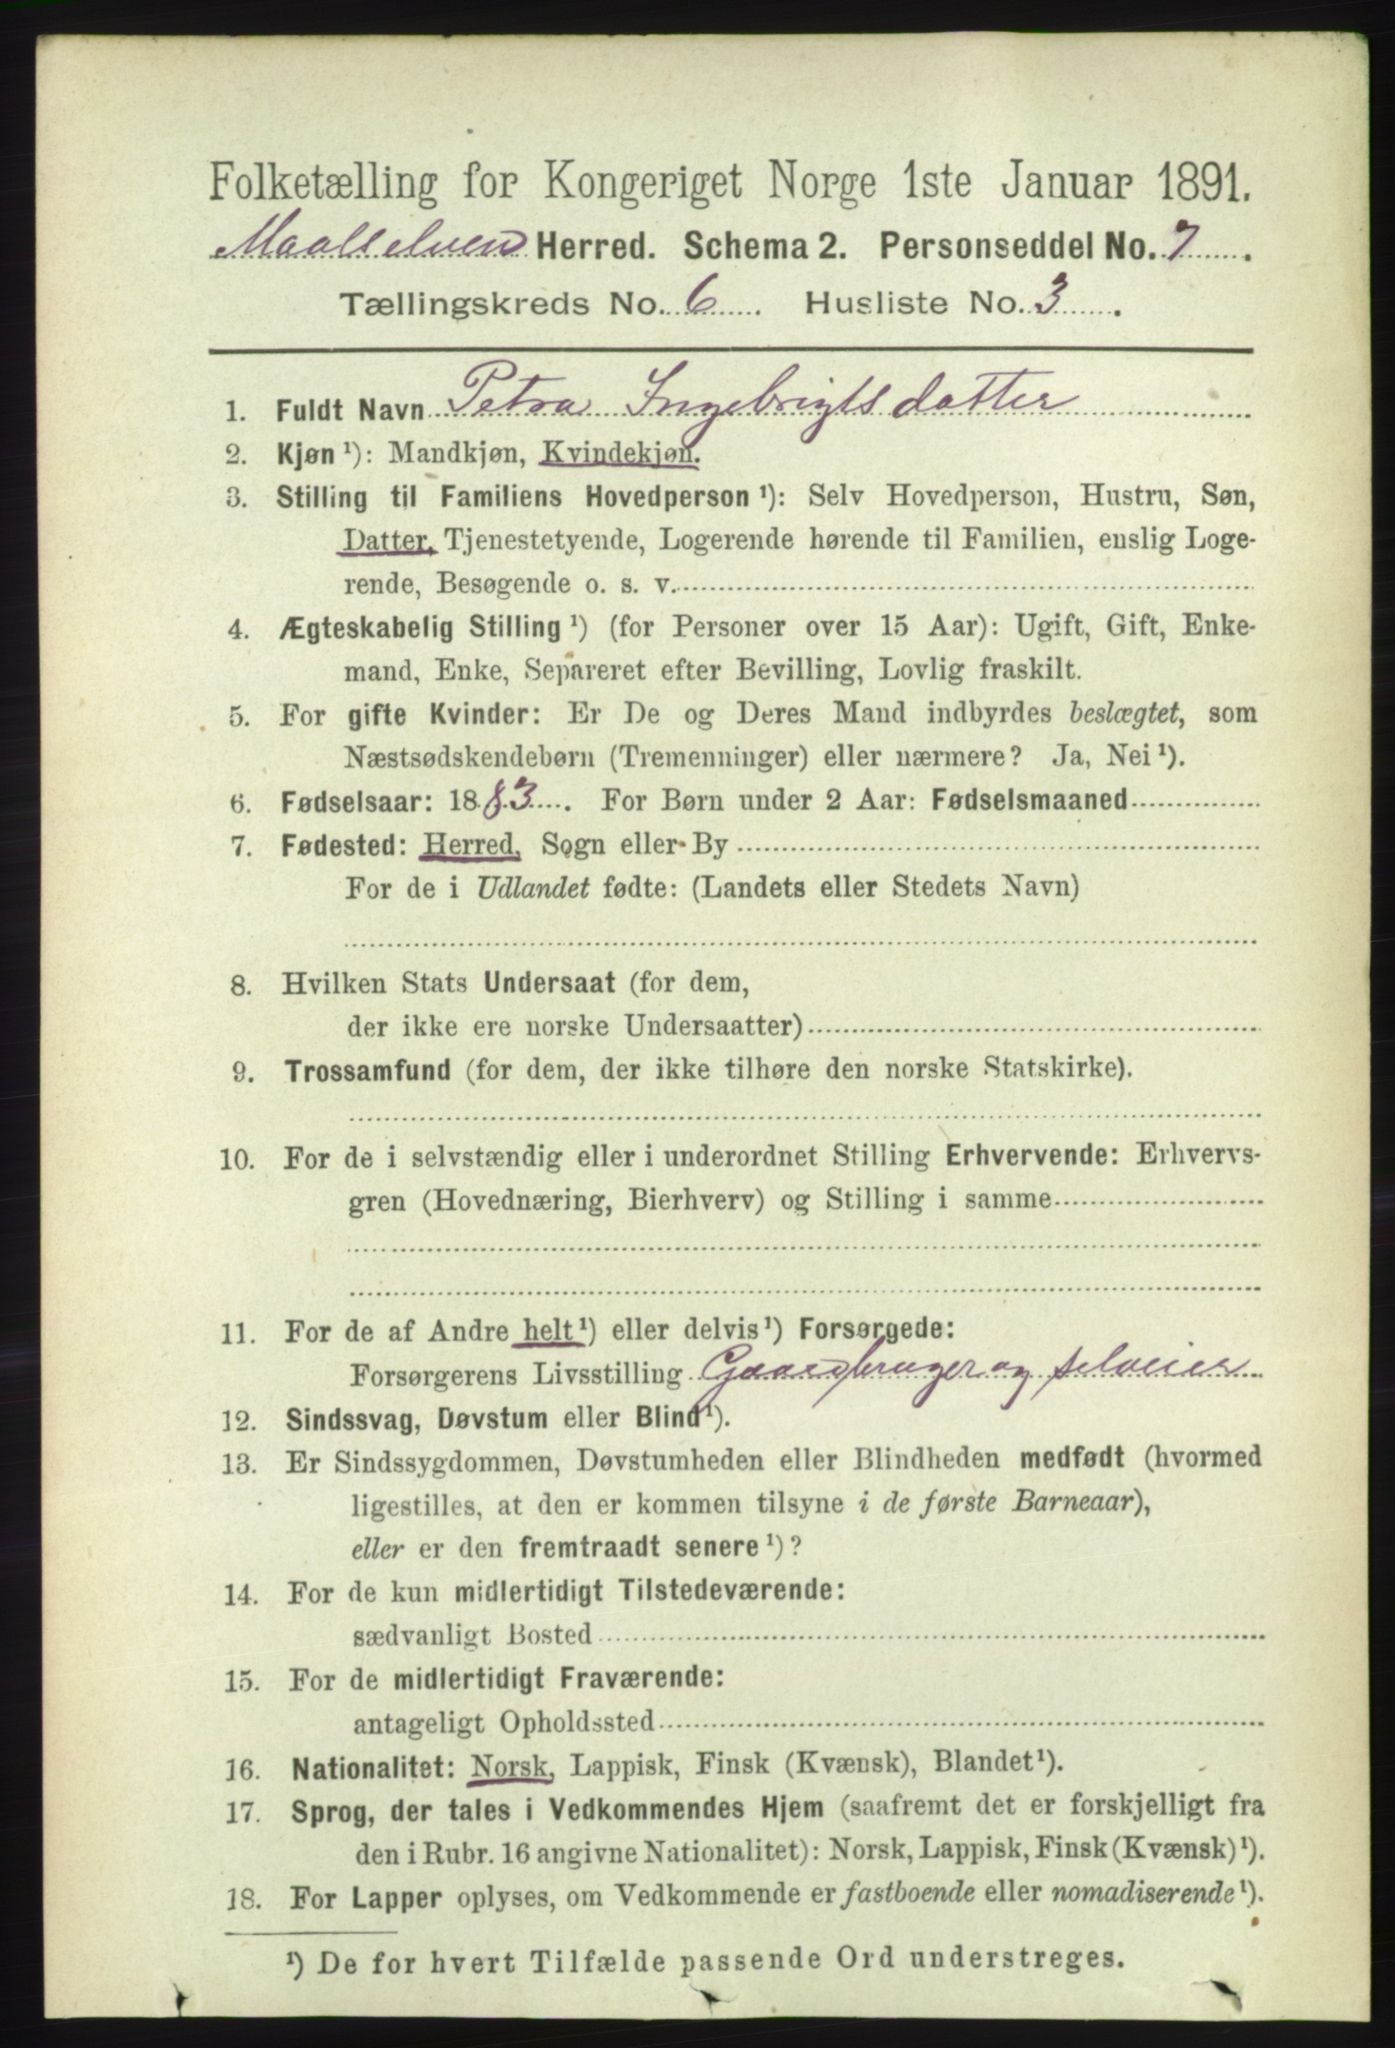 Folketælling for Kongeriget Norge 1ste Januar 1891.
Maalselven Herred. Schema 2. Personseddel No. 7
Tællingskreds No. 6 Husliste No. 3
1. Fuldt Navn Petra Ingebrigtsdatter
2. Kjøn ¹): Mandkjøn, Kvindekjøn.
3. Stilling til Familiens Hovedperson ¹): Selv Hovedperson, Hustru, Søn,
Datter, Tjenestetyende, Logerende hørende til Familien, enslig Loge-
rende, Besøgende o. s. v.
4. Ægteskabelig Stilling ¹) (for Personer over 15 Aar): Ugift, Gift, Enke-
mand, Enke, Separeret efter Bevilling, Lovlig fraskilt.
5. For gifte Kvinder: Er De og Deres Mand indbyrdes beslægtet, som
Næstsødskendebørn (Tremenninger) eller nærmere? Ja, Nei ¹).
6. Fødselsaar: 1883. For Børn under 2 Aar: Fødselsmaaned
7. Fødested: Herred, Sogn eller By
For de i Udlandet fødte: (Landets eller Stedets Navn)
8. Hvilken Stats Undersaat (for dem,
der ikke ere norske Undersaatter)
9. Trossamfund (for dem, der ikke tilhøre den norske Statskirke).
10. For de i selvstændig eller i underordnet Stilling Erhvervende: Erhvervs-
gren (Hovednæring, Bierhverv) og Stilling i samme
11. For de af Andre helt ¹) eller delvis ¹) Forsørgede:
Forsørgerens Livsstilling Gaardbruger og selveier
12. Sindssvag, Døvstum eller Blind ¹).
13. Er Sindssygdommen, Døvstumheden eller Blindheden medfødt (hvormed
ligestilles, at den er kommen tilsyne i de første Barneaar),
eller er den fremtraadt senere ¹)?
14. For de kun midlertidigt Tilstedeværende:
sædvanligt Bosted
15. For de midlertidigt Fraværende:
antageligt Opholdssted
16. Nationalitet: Norsk, Lappisk, Finsk (Kvænsk), Blandet ¹).
17. Sprog, der tales i Vedkommendes Hjem (saafremt det er forskjelligt fra
den i Rubr. 16 angivne Nationalitet): Norsk, Lappisk, Finsk (Kvænsk) ¹).
18. For Lapper oplyses, om Vedkommende er fastboende eller nomadiserende ¹).
¹) De for hvert Tilfælde passende Ord understreges.